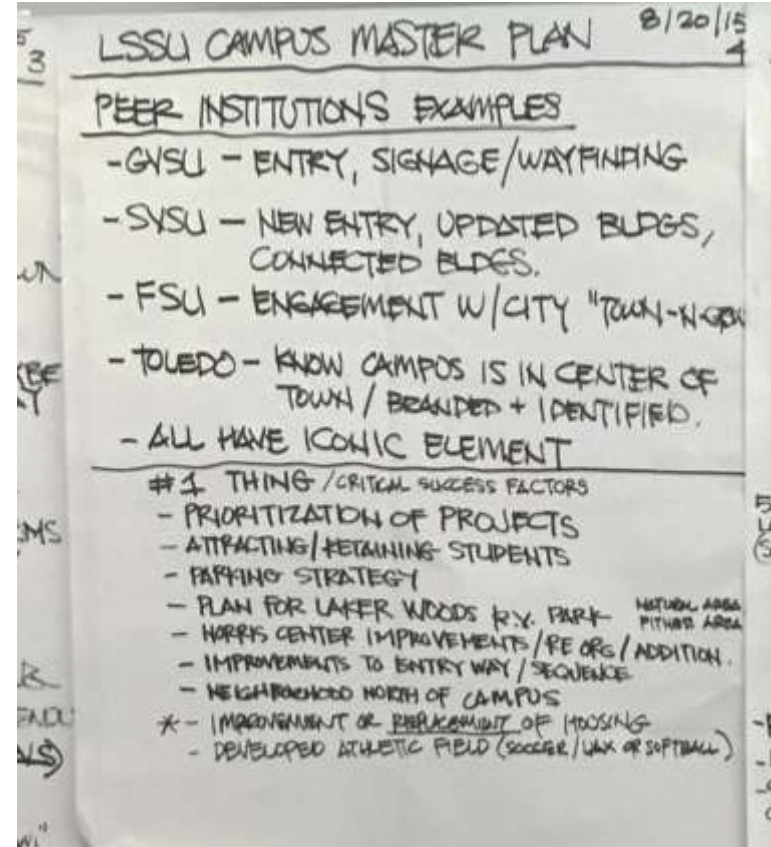 LSSU CAMPUS MASTER PLAN 8/20/15
4
3
PEER INSTITUTIONS EXAMPLES
- GVSU - ENTRY, SIGNAGE/WAYFINDING
- SVSU - NEW ENTRY, UPDATED BLDGS,
CONNECTED BLDGS.
- FSU - ENGAGEMENT W/CITY "TOWN-N-GOWN
- TOLEDO - KNOW CAMPUS IS IN CENTER OF
TOWN / BRANDED + IDENTIFIED.
- ALL HAVE ICONIC ELEMENT
#1 THING /CRITICAL SUCCESS FACTORS
- PRIORITIZATION OF PROJECTS
- ATTRACTING/RETAINING STUDENTS
- PARKING STRATEGY
- PLAN FOR LAKER WOODS R.V. PARK NATURAL AREA
AREA
- NORRIS CENTER IMPROVEMENTS/RE ORG/ADDITION.
- IMPROVEMENTS TO ENTRY WAY/SEQUENCE
- NEIGHBORHOOD NORTH OF CAMPUS
* - IMPROVEMENT OR REPLACEMENT OF HOUSING
- DEVELOPED ATHLETIC FIELD (SOCCER/LAX OR SOFTBALL)